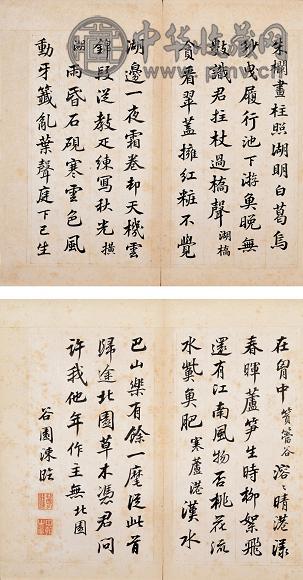 中华收藏网
朱欄畫柱照湖明白葛烏
紗曳履行池下游魚晚無
數識君拄杖過橋聲湖橋
貪看翠蓋擁紅粧不覺
湖邊一夜霜卷却天機雲
錦段從教疋練寫秋光橫
湖雨昏石硯寒雲色風
動牙籤亂葉聲庭下已生
在胷中篔簹谷溶〻晴港漾
春暉蘆筍生時柳絮飛
還有江南風物否桃花流
水紫魚肥寒蘆港漢水
巴山樂有餘一麾從此首
歸途北園草木馮君問
許我他年作主無北園
谷園